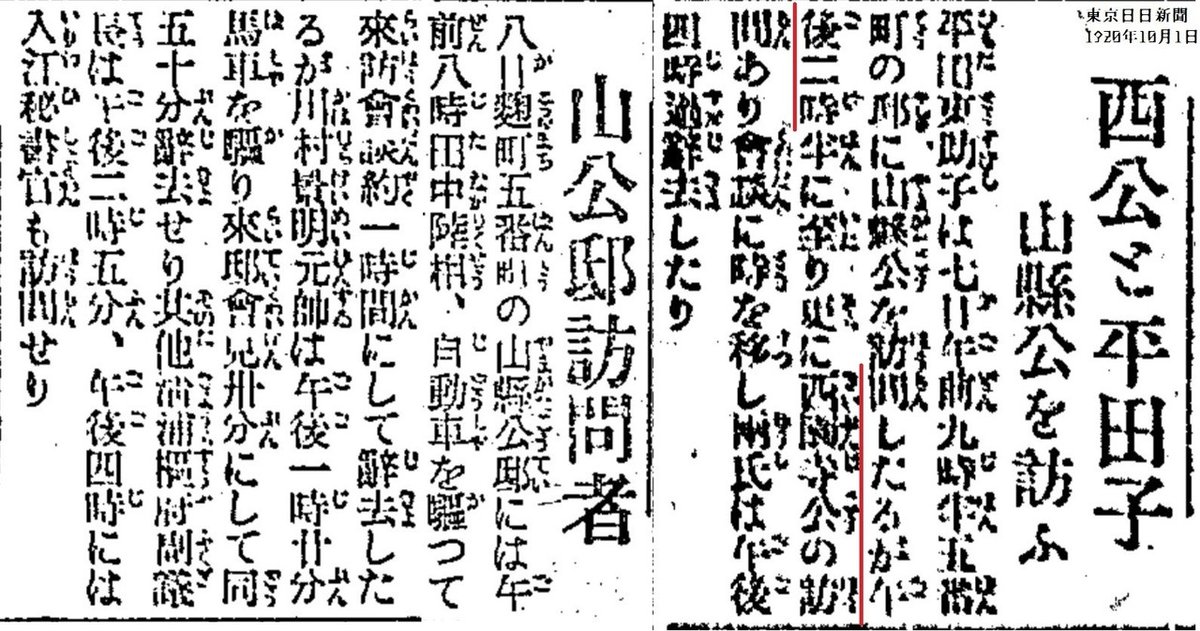 東京日日新聞
1920年10月1日
西公と平田子
山縣公を訪ふ
平田東助子は七日午前九時半五番
町の邸に山縣公を訪問したるが午
後二時半に至り更に西園寺公の訪
問あり會談に時を移し兩氏は午後
四時過辭去したり
山公邸訪問者
八日麹町五番町の山縣公邸には午
前八時田中陸相、自動車を驅つて
來訪會談約一時間にして辭去した
るが川村景明元帥は午後一時廿分
馬車を驅り來邸會見卅分にして同
五十分辭去せり其他淸浦樞府副議
長は午後二時五分、午後四時には
入江秘書官も訪問せり